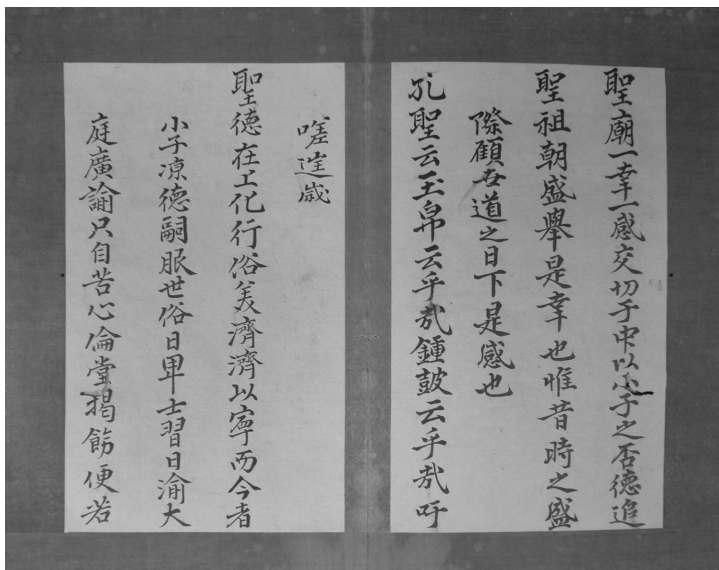 聖廟一幸一感交切于中以小子之否德追
聖祖朝盛擧是幸也惟昔時之盛
際顧吾道之日下是感也
孔聖云玉帛云乎哉鍾鼓云乎哉吁
嗟迬歲
聖德在上化行俗美濟濟以寧而今者
小子凉德嗣服世俗日卑士習日渝大
庭廣論只自苦心倫堂揭飭便若